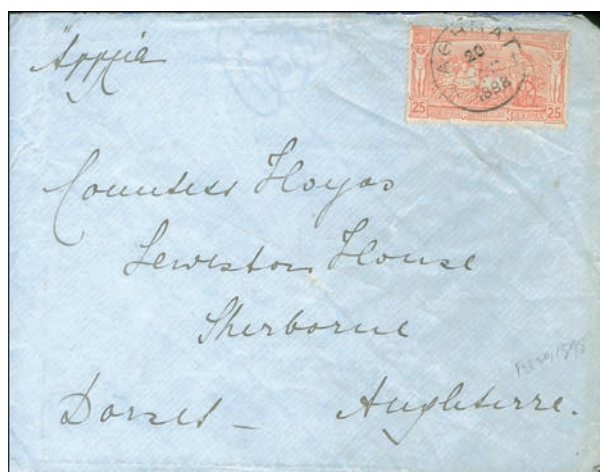 Ἀγγλία
25 25
20
1898
Countess Hoyos
Leweston House
Sherborne
Dorset – Angleterre.